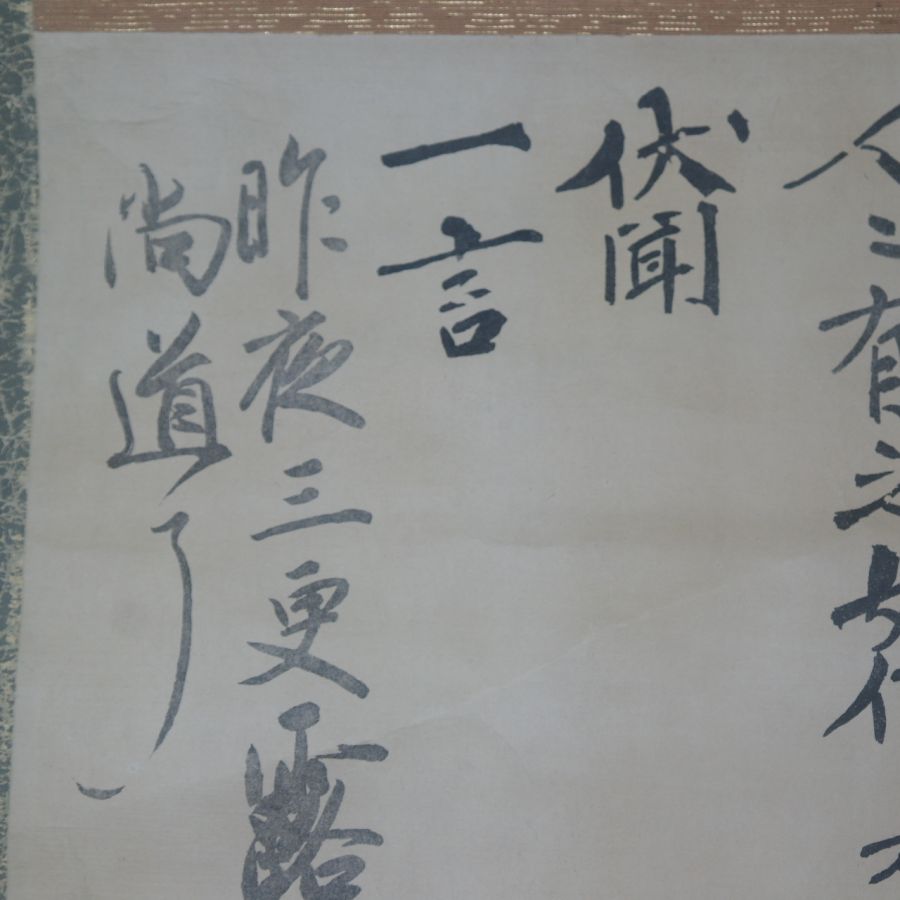 人々有之
伏聞
一言
昨夜三更露
尚道了